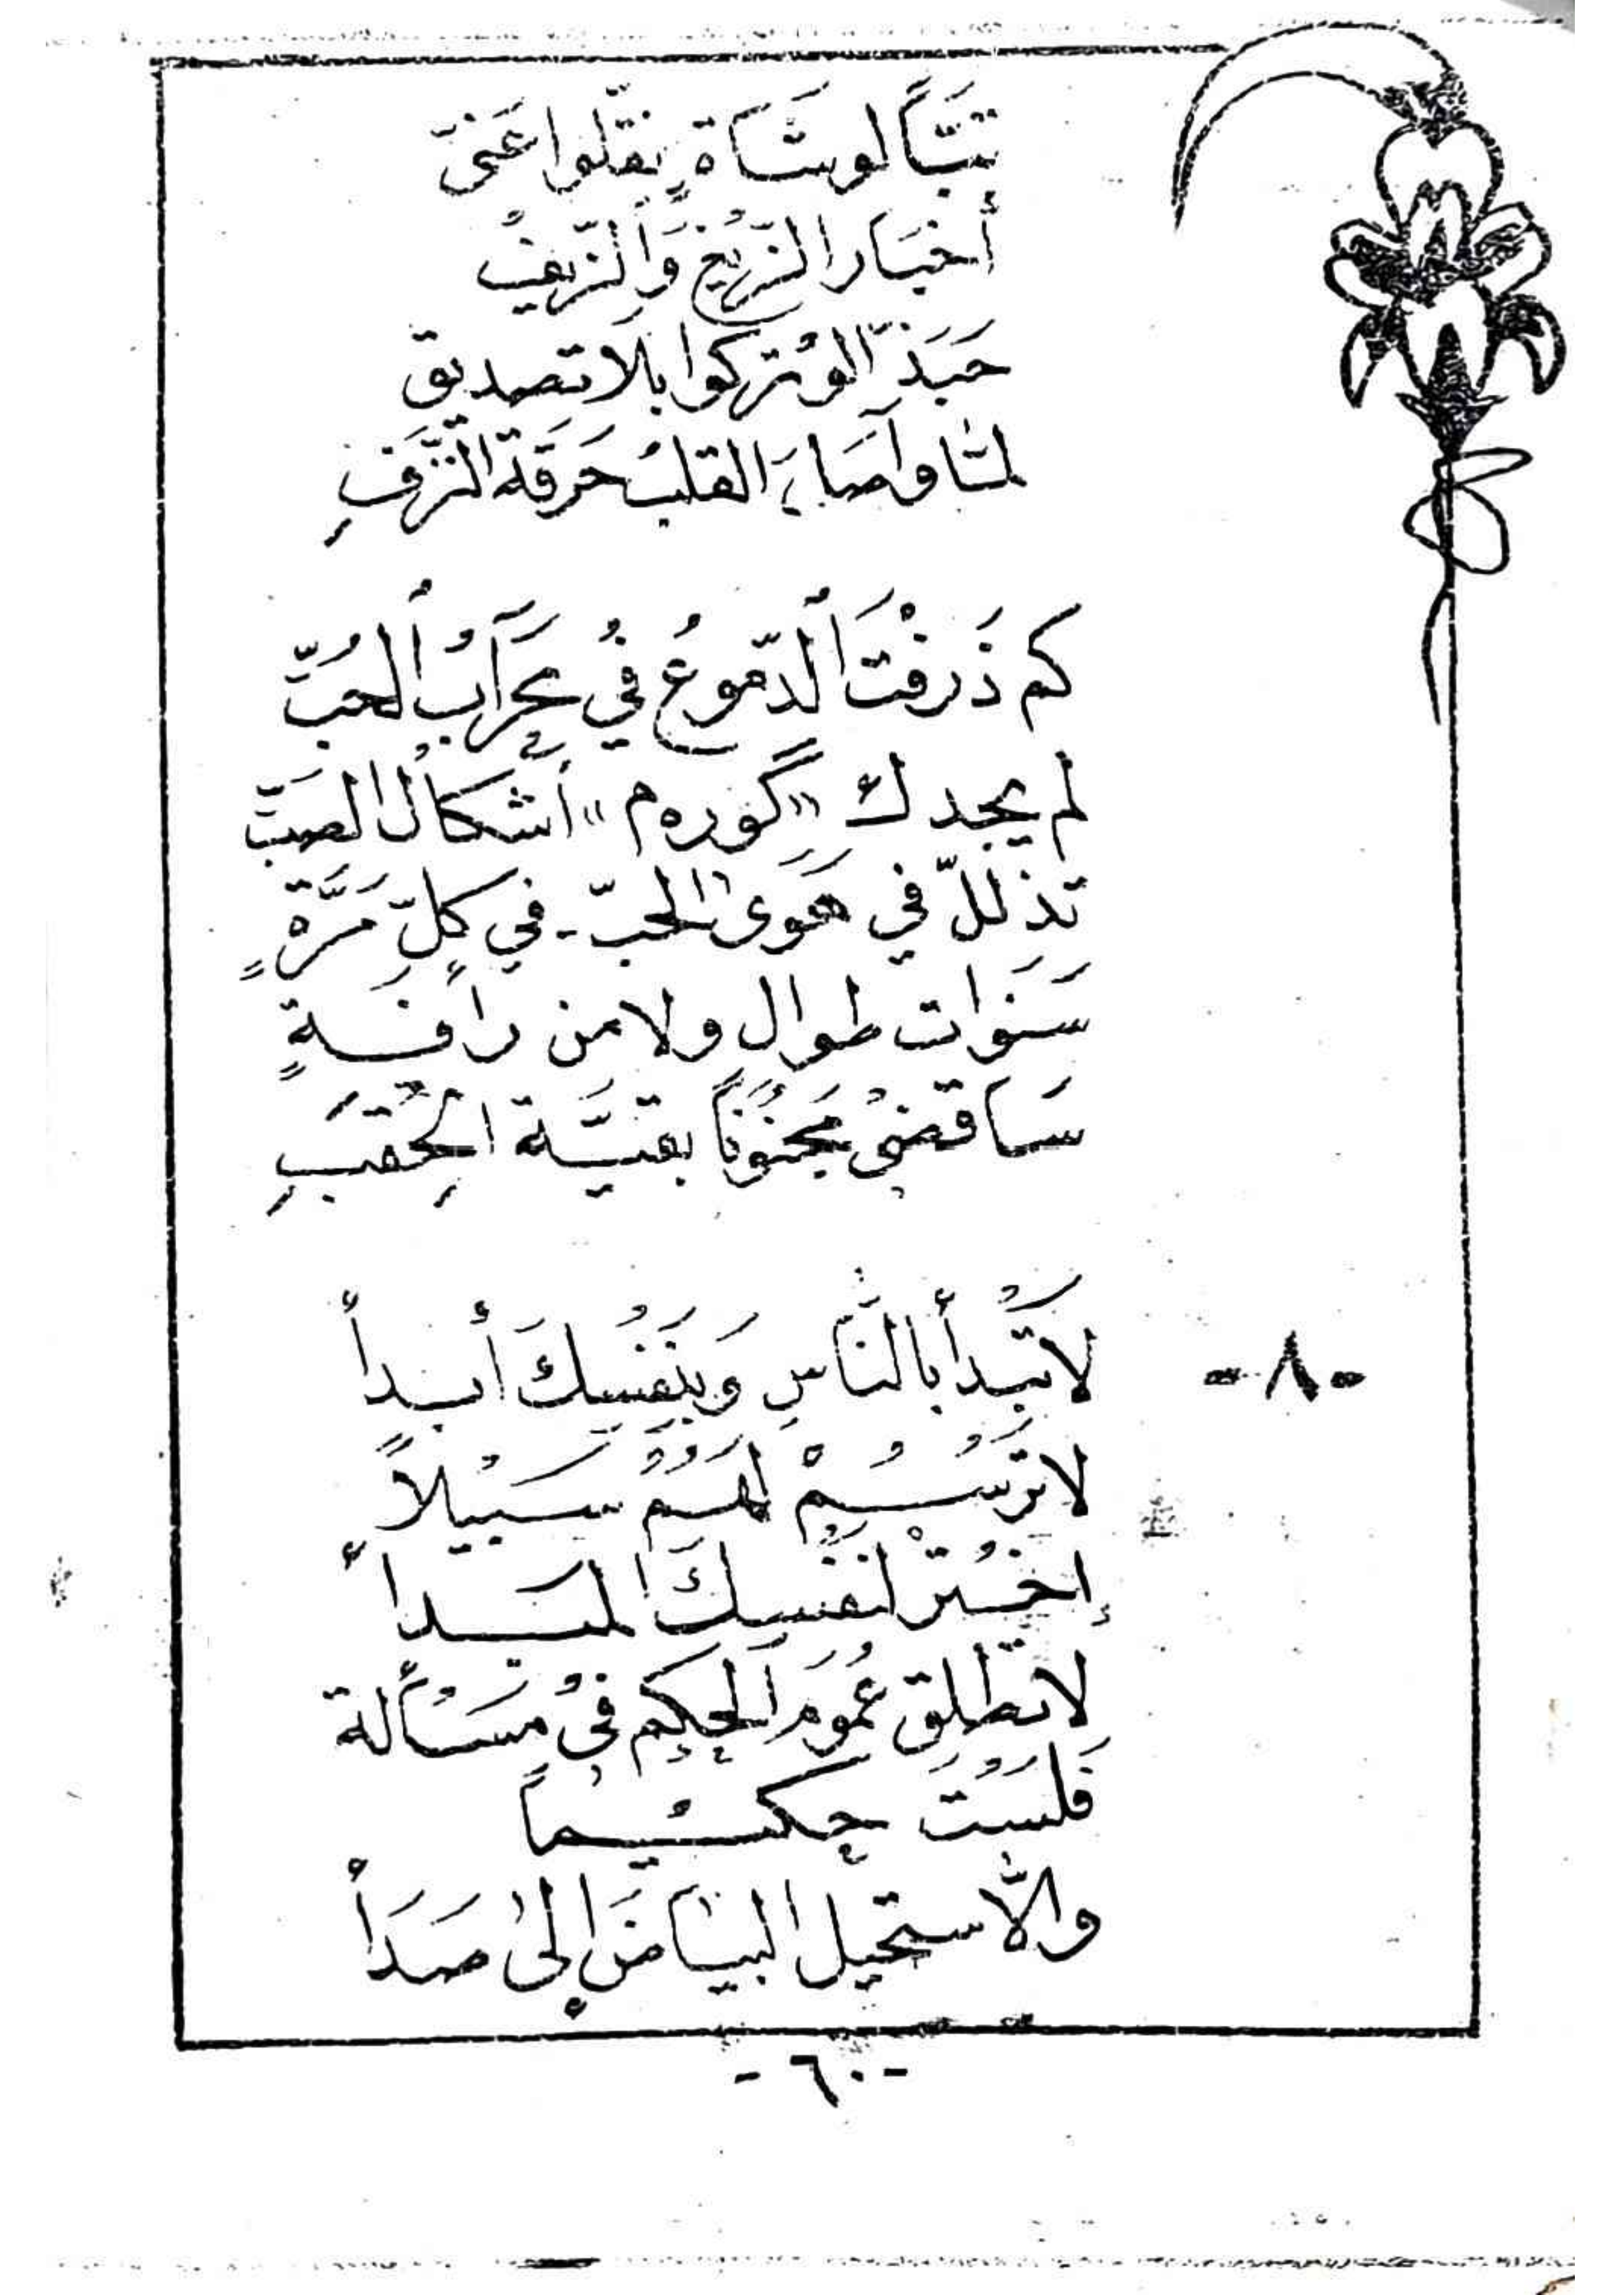 تبَّاً لوشاةٍ نقلّوا عَنّي
أخبَار الزّيْغِ وَالزّيفْ
حَبَذّا لوْ تركوا بلَا تصديق
لمَا وآصَابَ القلبُ حَرقَة النَّزَفِ
كم ذَرفْتَ الدّموعُ فيْ محرَآبْ الحُبّ
لم يجدكِ «گورەم» أشكالُ الصَبّ
تذللّ في هَوى الحبّ - في كلِّ مَرَّةٍ
سَنَوات طوالٍ ولا من رأفةٍ
سَاقضيْ مَجنوْناً بقيَّة الحِقَبِ
- ٨ -
لا تَبْدأ بالنّاسِ وَبنَفْسِكَ أبدأ
لا تَرْسُمْ لهَمْ سَبيْلاً
إخْتَرْ لنفْسِكَ المَبدأ
لا تطلِق عُمُومَ الحِكم فيْ مَسْألة
فَلسَتْ حِكيْماً
والّا ستحيل البيَاضَ إلى صَدَأ
- ٦٠ -